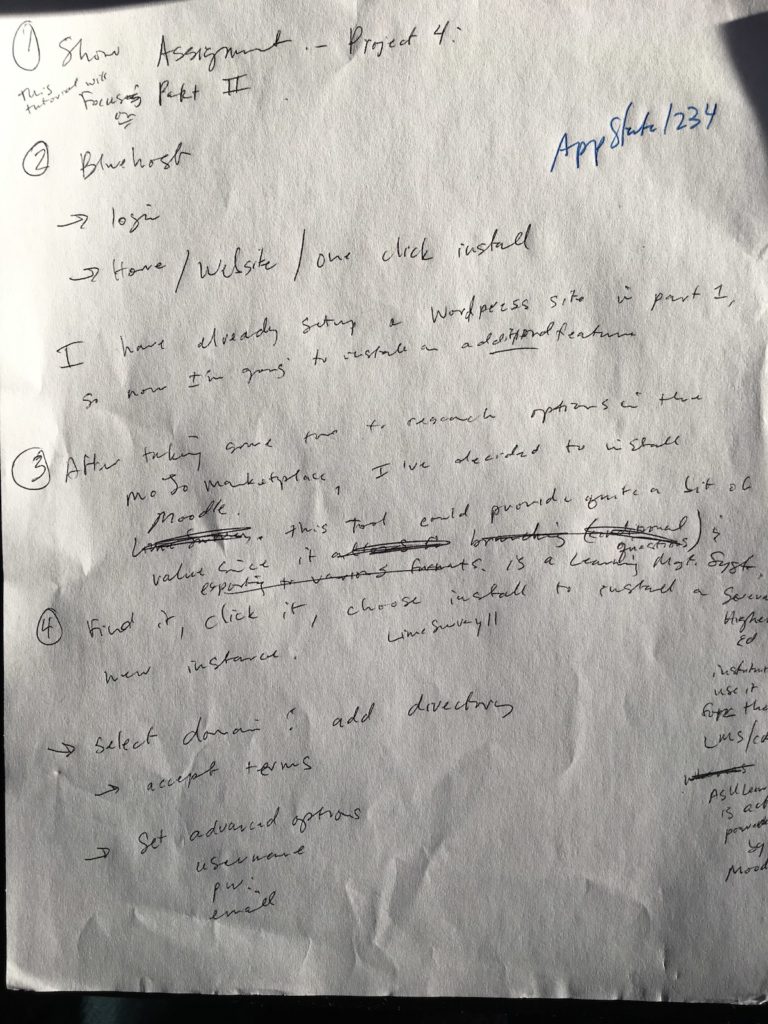 ① Show Assignment -- Project 4:
This tutorial will
Focusing Part II
on
AppState1234
② Bluehost
→ login
→ Home / Website / one click install
I have already setup a Wordpress site in part 1,
so now I'm going to install an additional feature
③ After taking some time to research options in the
MoJo marketplace, I've decided to install
Moodle.
Lime Survey. this Tool could provide quite a bit of
value since it allows branching (conditional questions) &
exporting to various formats. is a Learning Mgt. Syst,
④ Find it, click it, choose install to install a
new instance.
LimeSurvey11
Several
Higher
Ed
institut
use it
for the
LMS/co
ASULear
is act
powere
by
Mood
→ Select domain & add directory
→ accept terms
→ Set advanced options
username
pw:
email